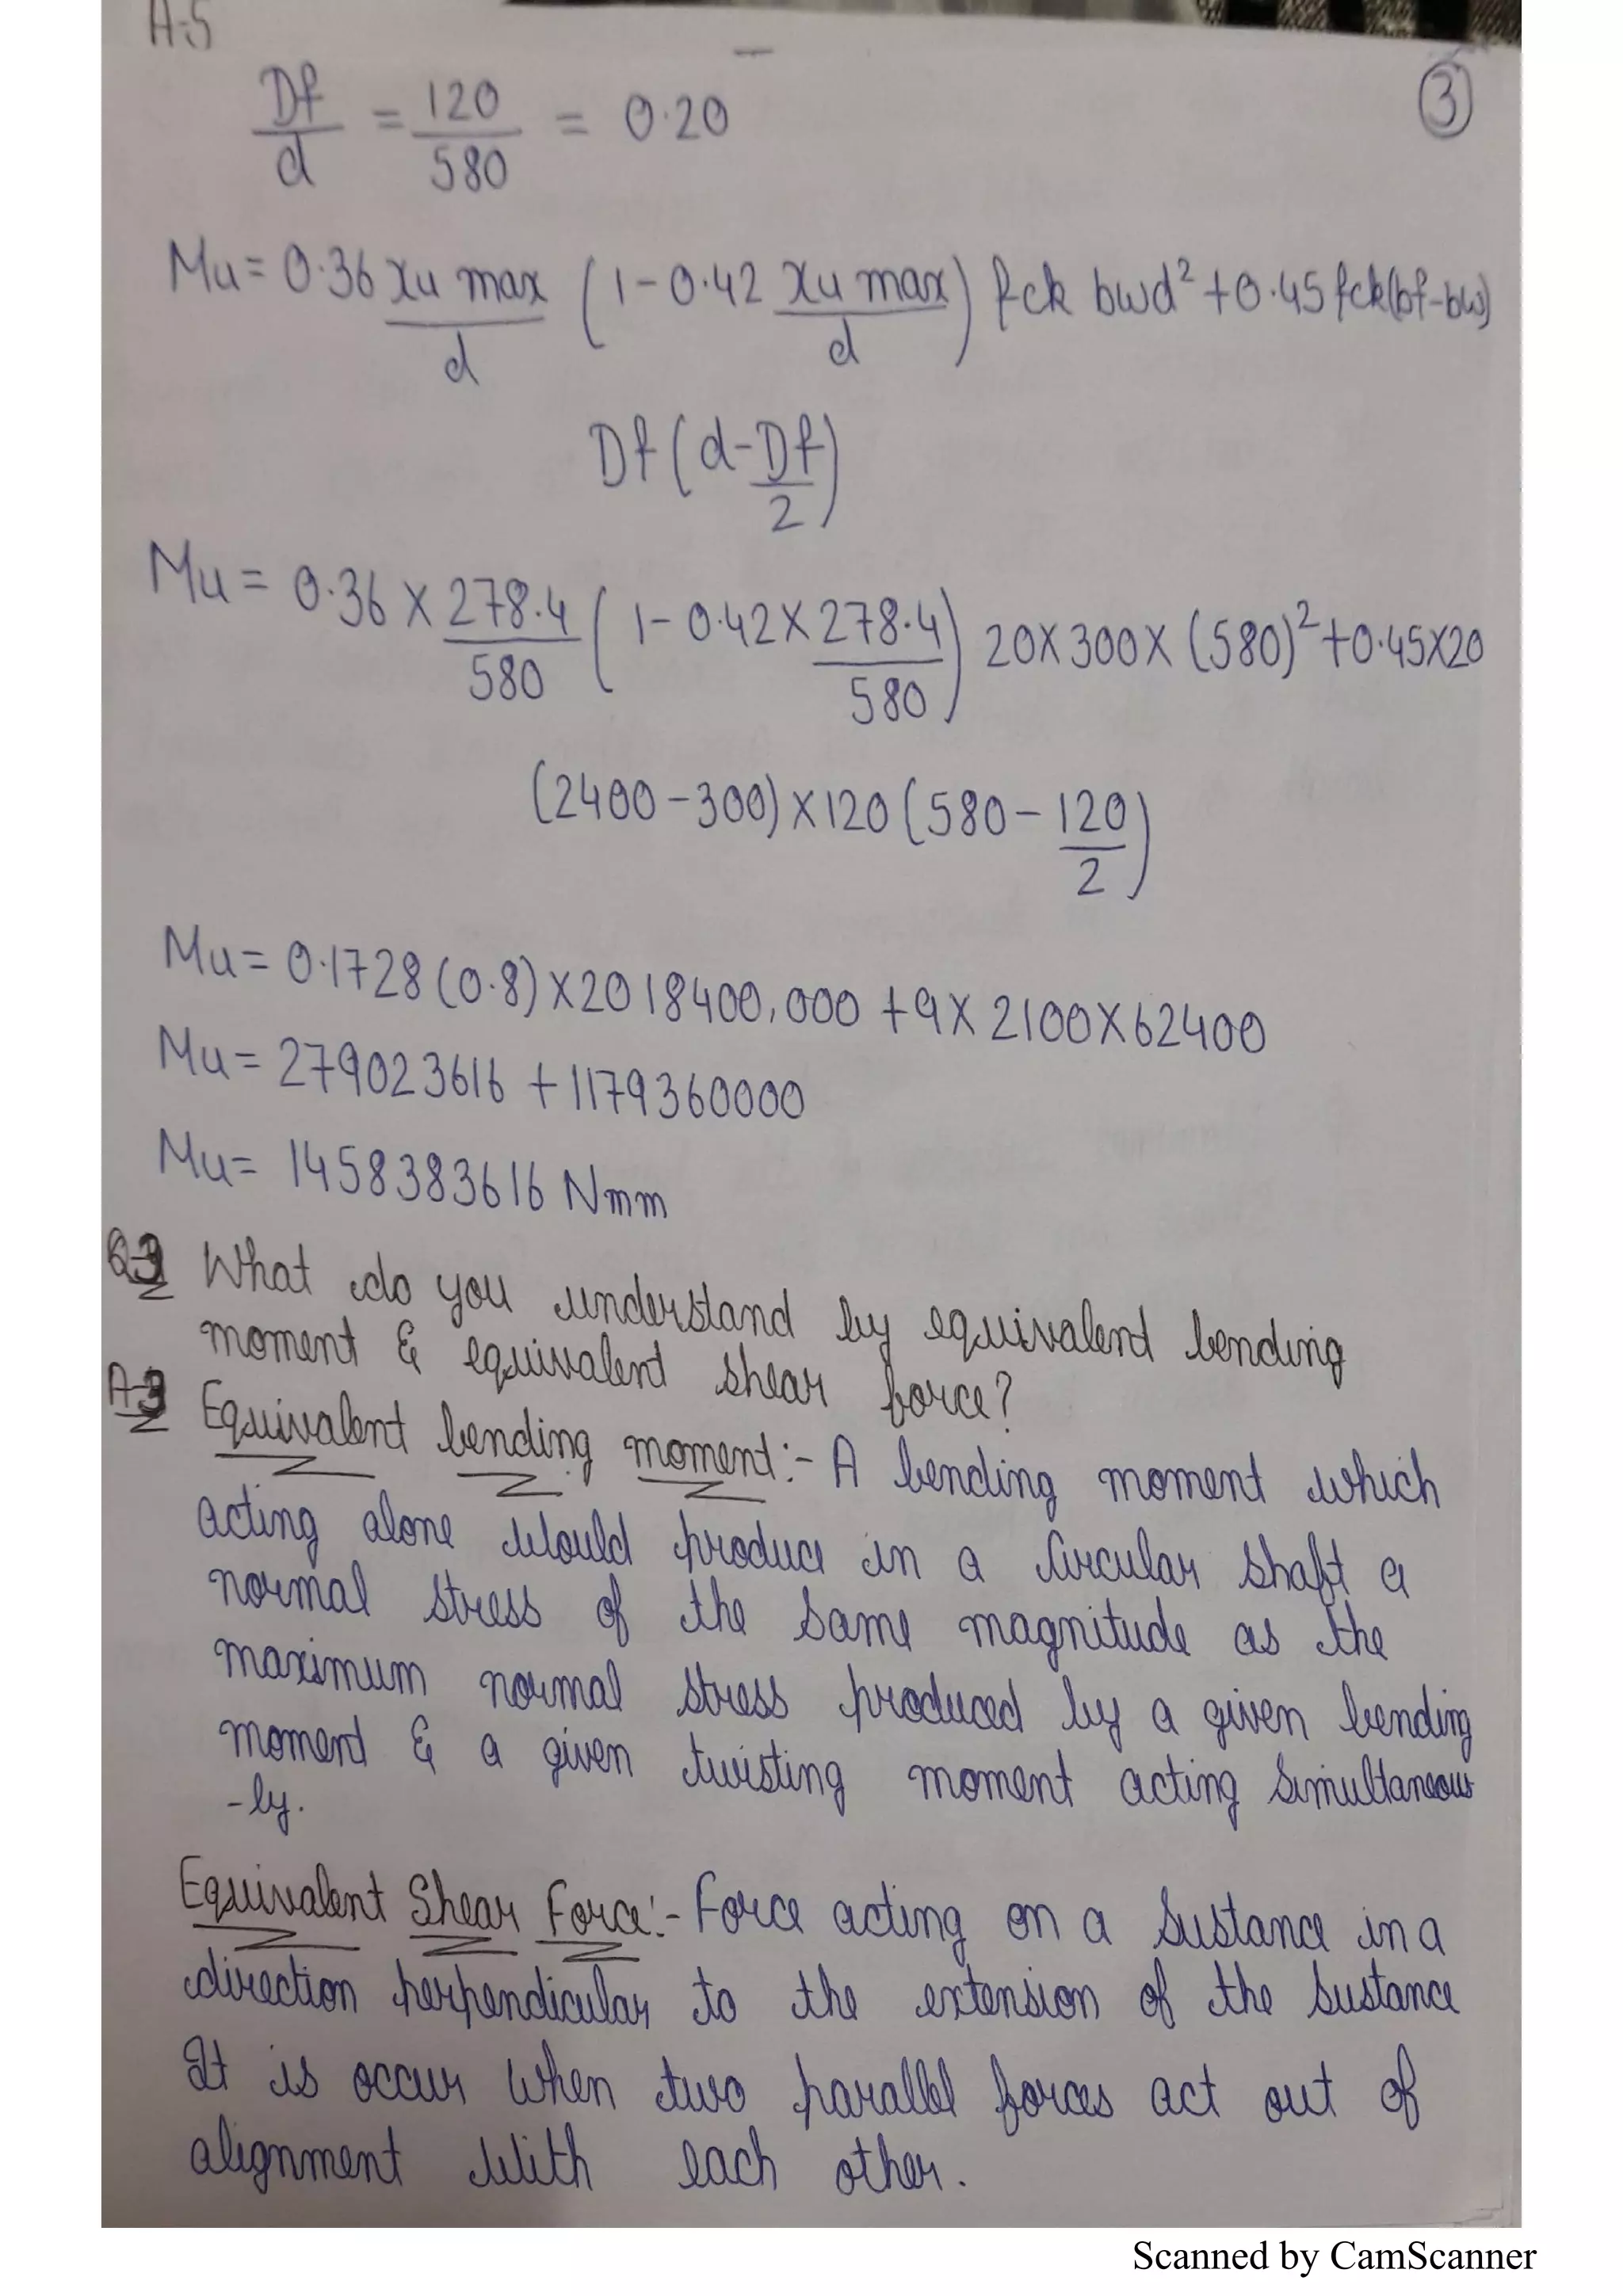 A-5
3
Df/d = 120/580 = 0.20
Mu = 0.36 xu max/d (1 - 0.42 xu max/d) fck bwd² + 0.45 fck(bf-bw)
Df(d - Df/2)
Mu = 0.36 × 278.4/580 (1 - 0.42 × 278.4/580) 20×300×(580)² + 0.45×20
(2400 - 300) × 120 (580 - 120/2)
Mu = 0.1728 (0.8) × 2018400,000 + 9 × 2100 × 62400
Mu = 279023616 + 1179360000
Mu = 1458383616 Nmm
Q-3 What do you understand by equivalent bending
moment & equivalent shear force?
A-3 Equivalent bending moment:- A bending moment which
acting alone would produce in a circular shaft a
normal stress of the same magnitude as the
maximum normal stress produced by a given bending
moment & a given twisting moment acting simultaneous
-ly.
Equivalent Shear Force:- Force acting on a sustance in a
direction perpendicular to the extension of the sustance
It is occur when two parallel forces act out of
alignment with each other.
Scanned by CamScanner